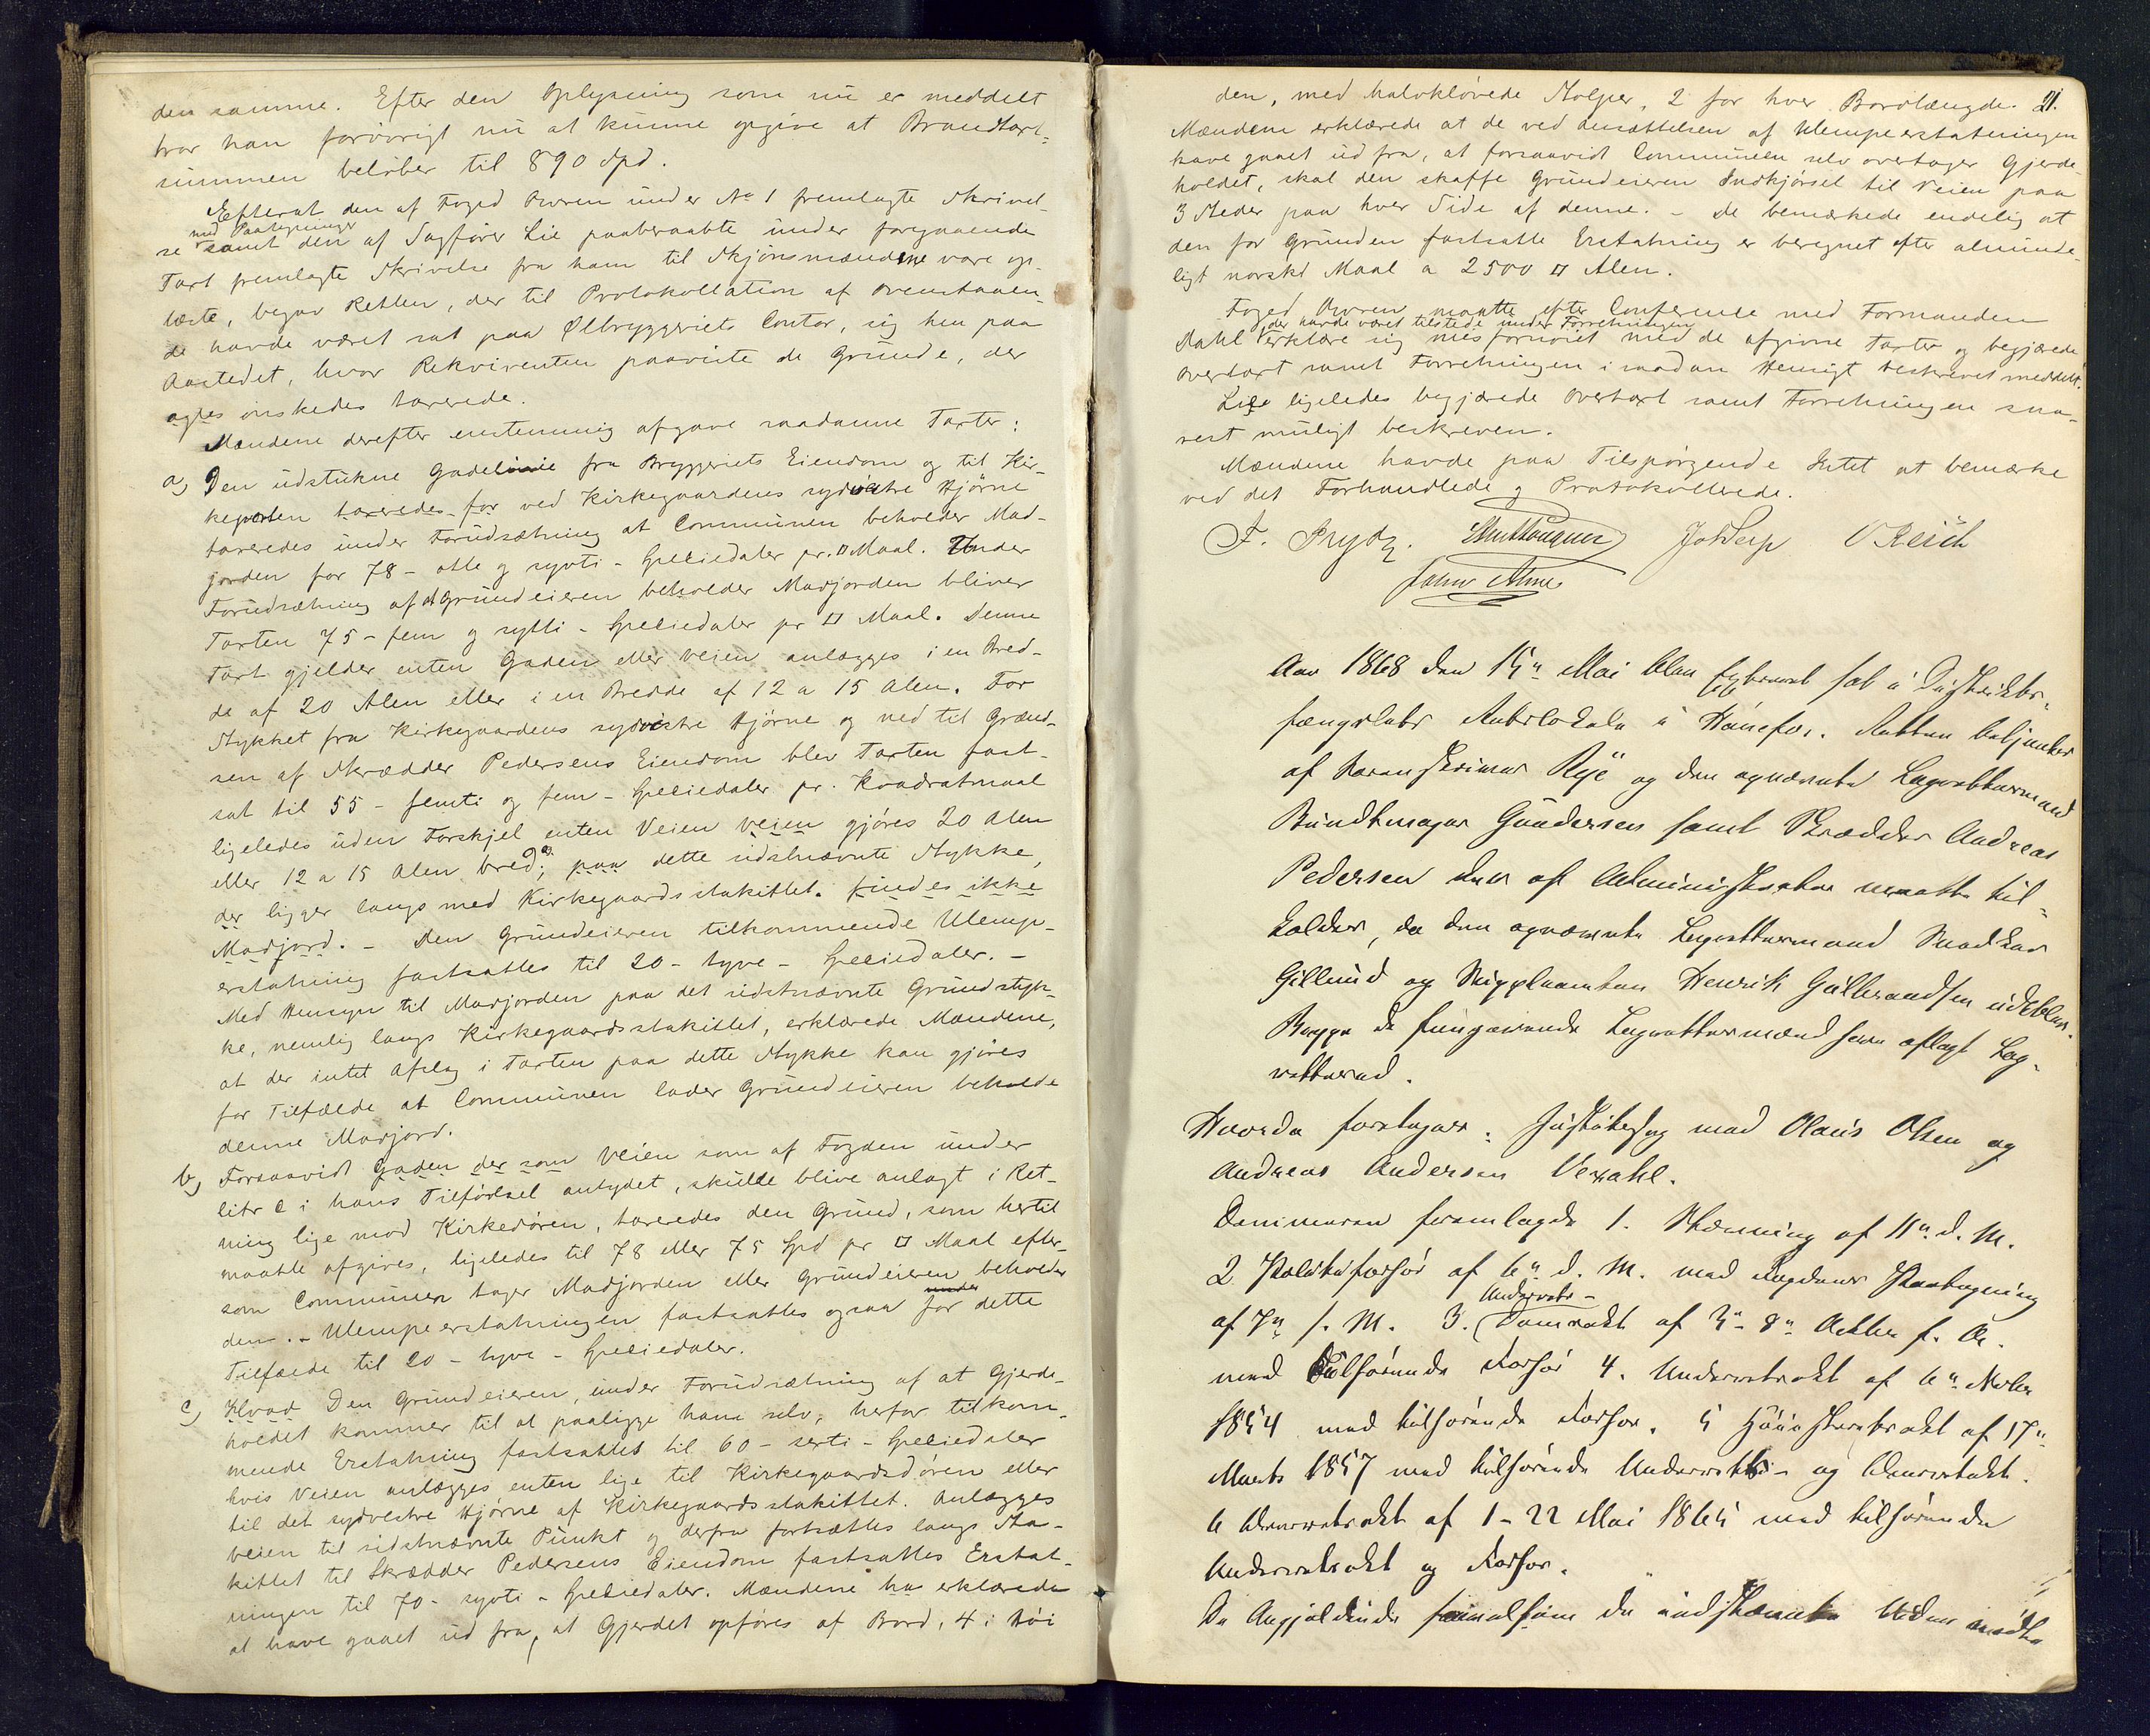 den samme. Efter den Oplysning som nu er meddelt
tror han forövrigt nu at kunne opgive at Brandtaxt-
summen belöber til 890 Spd.
Efterat den af Foged Owren under No 1 fremlagte Skrivel-
med Paategninger
se samt den af Sagfører Lie paaberaabte under foregaaende
Taxt fremlagte Skrivelse fra ham til Skjönsmændene vare op-
læste, begav Retten, der til Protokollation af ovenstaaen-
de havde været sat paa Ølbryggeriets Contor, sig hen paa
Aastedet, hvor Rekvirenten paaviste de Grunde, der
agtes önskedes taxerede.
Mændene derefter enstemmig afgave saadanne Taxter:
a) Den udstukne Gadelinie fra Bryggeriets Eiendom og til Kir-
keporten taxeredes for ved Kirkegaardens sydvestre Hjörne
taxeredes under Forudsætning at Communen beholder Mad-
jorden for 78 - otte og syvti - Speciedaler pr. □ Maal. Under
Forudsætning af at Grundeieren beholder Madjorden bliver
Taxten 75 - fem og sytti - Speciedaler pr □ Maal. Denne
Taxt gjelder enten Gaden eller Veien anlægges i en Bred-
de af 20 Alen eller i en Bredde af 12 a 15 Alen. For
Stykket fra Kirkegaardens sydvestre Hjörne og ned til Grænd-
sen af Skrædder Pedersens Eiendom blev Taxten fast-
sat til 55 - femti og fem - Speciedaler pr. Kvadratmaal
ligeledes uden Forskjel enten Veien veien gjöres 20 Alen
eller 12 a 15 Alen bred; paa dette sidstnævnte Stykke,
der ligger langs med Kirkegaardsstakittet. findes ikke
Madjord. - Den Grundeieren tilkommende Ulempe-
erstatning fastsattes til 20 - tyve - Speciedaler. -
Med Hensyn til Madjorden paa det sidstnævnte Grundstyk-
ke, nemlig langs Kirkegaardsstakittet, erklærede Mændene,
at der intet Afslag i Taxten paa dette Stykke kan gjöres
for Tilfælde at Communen lader Grundeieren beholde
denne Madjord.
b) Forsaavidt Gaden der som Veien som af Fogden under
litr c i hans Tilförsel antydet, skulde blive anlagt i Ret-
ning lige mod Kirkedören, taxeredes den Grund, som hertil
maatte afgives, ligeledes til 78 eller 75 Spd pr □ Maal efter-
som Communen tager Madjorden eller Grundeieren beholder
den. - Ulempeerstatningen fastsattes ogsaa for dette
under
Tilfælde til 20 - tyve - Speciedaler.
c) Hvad Den Grundeieren, under Forudsætning af at Gjerde-
holdet kommer til at paaligge ham selv, herfor tilkom-
mende Erstatning fastsattes til 60 - sexti - Speciedaler
hvis Veien anlægges enten lige til Kirkegaardsdören eller
til det sydvestre Hjörne af Kirkegaardsstakittet. Anlægges
Veien til sidstnævnte Punkt og derfra fortsættes langs Sta-
kittet til Skrædder Pedersens Eiendom fastsattes Erstat-
ningen til 70 - syvti - Speciedaler. Mændene ha erklærede
at have gaaet ud fra, at Gjerdet opföres af Bord, 4 i Höi
21.
den, med halvklövede Stolper, 2 for hver Bordlængde.
Mændene erklærede at de ved Ansættelsen af Ulempeerstatningen
have gaaet ud fra, at forsaavidt Communen selv overtager Gjerde-
holdet, skal den skaffe Grundeieren Indkjörsel til Veien paa
3 Steder paa hver Side af denne. - De bemærkede endelig at
den for Grunden fastsatte Erstatning er beregnet efter alminde-
ligt norskt Maal a 2500 □ Alen.
Foged Owren maatte efter Conference med Formanden
der havde været tilstede under Forretningen
Dahl erklære sig misfornöiet med de afgivne Taxter og begjærede
Overtaxt samt Forretningen i saadan Hensigt beskrevet meddelt.
Lie ligeledes begjærede Overtaxt samt Forretningen sna-
rest muligt beskreven.
Mændene havde paa Tilspörgende Intet at bemærke
ved det Forhandlede og Protokollerede.
F. Prydz.
Aar 1868 den 15de Mai blev Extraret sat i Distrikts-
fængslets Retslokale i Hönefos. Retten betjentes
af Sorenskriver Rye og den opnævnte Lagrettesmand
Bundtmager Gundersen samt Skrædder Andreas
Pedersen der af Administrator maatte til-
kaldes, da den opnævnte Lagrettesmand Snedker
Gillund og Skippstomten Henrik Gulbrandsen udeblev.
Begge de fungerende Lagrettesmænd have aflagt Lag-
retteed.
Hvorda foretoges: Justitssag mod Olaus Olsen og
Andreas Andersen Vexahl.
Dommeren fremlagde 1. Stævning af 11te d. M.
2 Politiforhör af 6te d. M. med Fogdens Paategning
Underrets-
af 7de s. M. 3. Domsakt af 3- 8de Octber f. A.
med tilhörende Forhör 4. Underretsakt af 6te Novber
1854 med tilhörende Forhör. 5 Höiesteretsakt af 17de
Marts 1857 med tilhörende Underretts- og Overretsakt.
6 Overretsakt af 1-22 Mai 1865 med tilhörende
Underretsakt og Forhör.
De Angjældende saavelsom de indstævnte Vidner mödte